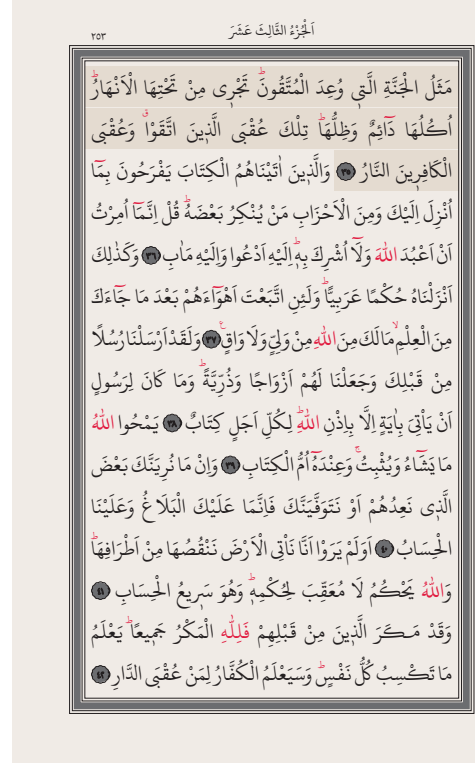 اَلْجُزْءُ الثَّالِثَ عَشَرَ
٢٥٣
مَثَلُ الْجَنَّةِ الَّتٖي وُعِدَ الْمُتَّقُونَؕ تَجْرٖي مِنْ تَحْتِهَا الْاَنْهَارُؕ
اُكُلُهَا دَٓائِمٌ وَظِلُّهَاؕ تِلْكَ عُقْبَى الَّذٖينَ اتَّقَوْاࣗ وَعُقْبَى
الْكَافِرٖينَ النَّارُ ﴿٣٥﴾ وَالَّذٖينَ اٰتَيْنَاهُمُ الْكِتَابَ يَفْرَحُونَ بِمَٓا
اُنْزِلَ اِلَيْكَ وَمِنَ الْاَحْزَابِ مَنْ يُنْكِرُ بَعْضَهُؕ قُلْ اِنَّمَٓا اُمِرْتُ
اَنْ اَعْبُدَ اللّٰهَ وَلَٓا اُشْرِكَ بِهٖؕ اِلَيْهِ اَدْعُوا وَاِلَيْهِ مَاٰبِ ﴿٣٦﴾ وَكَذٰلِكَ
اَنْزَلْنَاهُ حُكْمًا عَرَبِيًّاؕ وَلَئِنِ اتَّبَعْتَ اَهْوَٓاءَهُمْ بَعْدَ مَا جَٓاءَكَ
مِنَ الْعِلْمِۙ مَا لَكَ مِنَ اللّٰهِ مِنْ وَلِيٍّ وَلَا وَاقٍࣖ ﴿٣٧﴾ وَلَقَدْ اَرْسَلْنَا رُسُلًا
مِنْ قَبْلِكَ وَجَعَلْنَا لَهُمْ اَزْوَاجًا وَذُرِّيَّةًؕ وَمَا كَانَ لِرَسُولٍ
اَنْ يَأْتِيَ بِاٰيَةٍ اِلَّا بِاِذْنِ اللّٰهِؕ لِكُلِّ اَجَلٍ كِتَابٌ ﴿٣٨﴾ يَمْحُوا اللّٰهُ
مَا يَشَٓاءُ وَيُثْبِتُۚ وَعِنْدَهُٓ اُمُّ الْكِتَابِ ﴿٣٩﴾ وَاِنْ مَا نُرِيَنَّكَ بَعْضَ
الَّذٖي نَعِدُهُمْ اَوْ نَتَوَفَّيَنَّكَ فَاِنَّمَا عَلَيْكَ الْبَلَاغُ وَعَلَيْنَا
الْحِسَابُ ﴿٤٠﴾ اَوَلَمْ يَرَوْا اَنَّا نَأْتِي الْاَرْضَ نَنْقُصُهَا مِنْ اَطْرَافِهَاؕ
وَاللّٰهُ يَحْكُمُ لَا مُعَقِّبَ لِحُكْمِهٖؕ وَهُوَ سَرٖيعُ الْحِسَابِ ﴿٤١﴾
وَقَدْ مَكَرَ الَّذٖينَ مِنْ قَبْلِهِمْ فَلِلّٰهِ الْمَكْرُ جَمٖيعًاؕ يَعْلَمُ
مَا تَكْسِبُ كُلُّ نَفْسٍؕ وَسَيَعْلَمُ الْكُفَّارُ لِمَنْ عُقْبَى الدَّارِ ﴿٤٢﴾